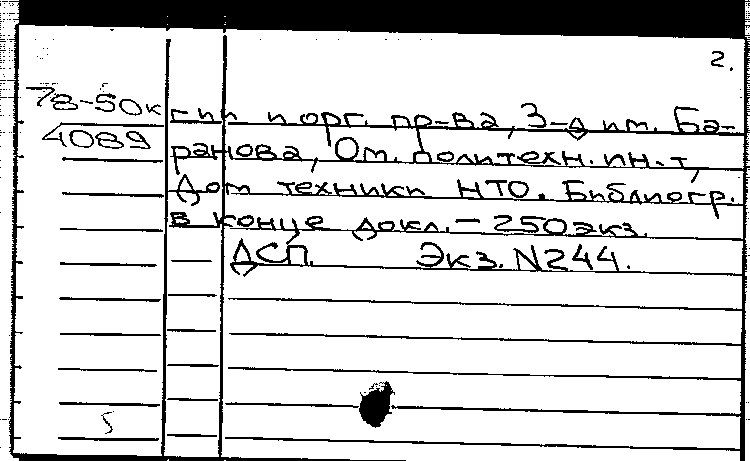 2.
78-50к
4089
гии и орг. пр-ва, З-д им. Ба-
ранова, Ом. политехн. ин-т,
Дом техники НТО. Библиогр.
в конце докл. - 250 экз.
ДСП. Экз. N244.
5